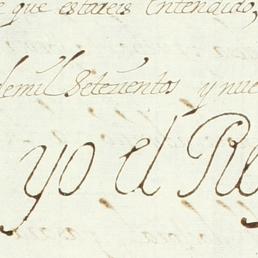 que estareis entendido,
demil Setecientos y nue
yo el Re